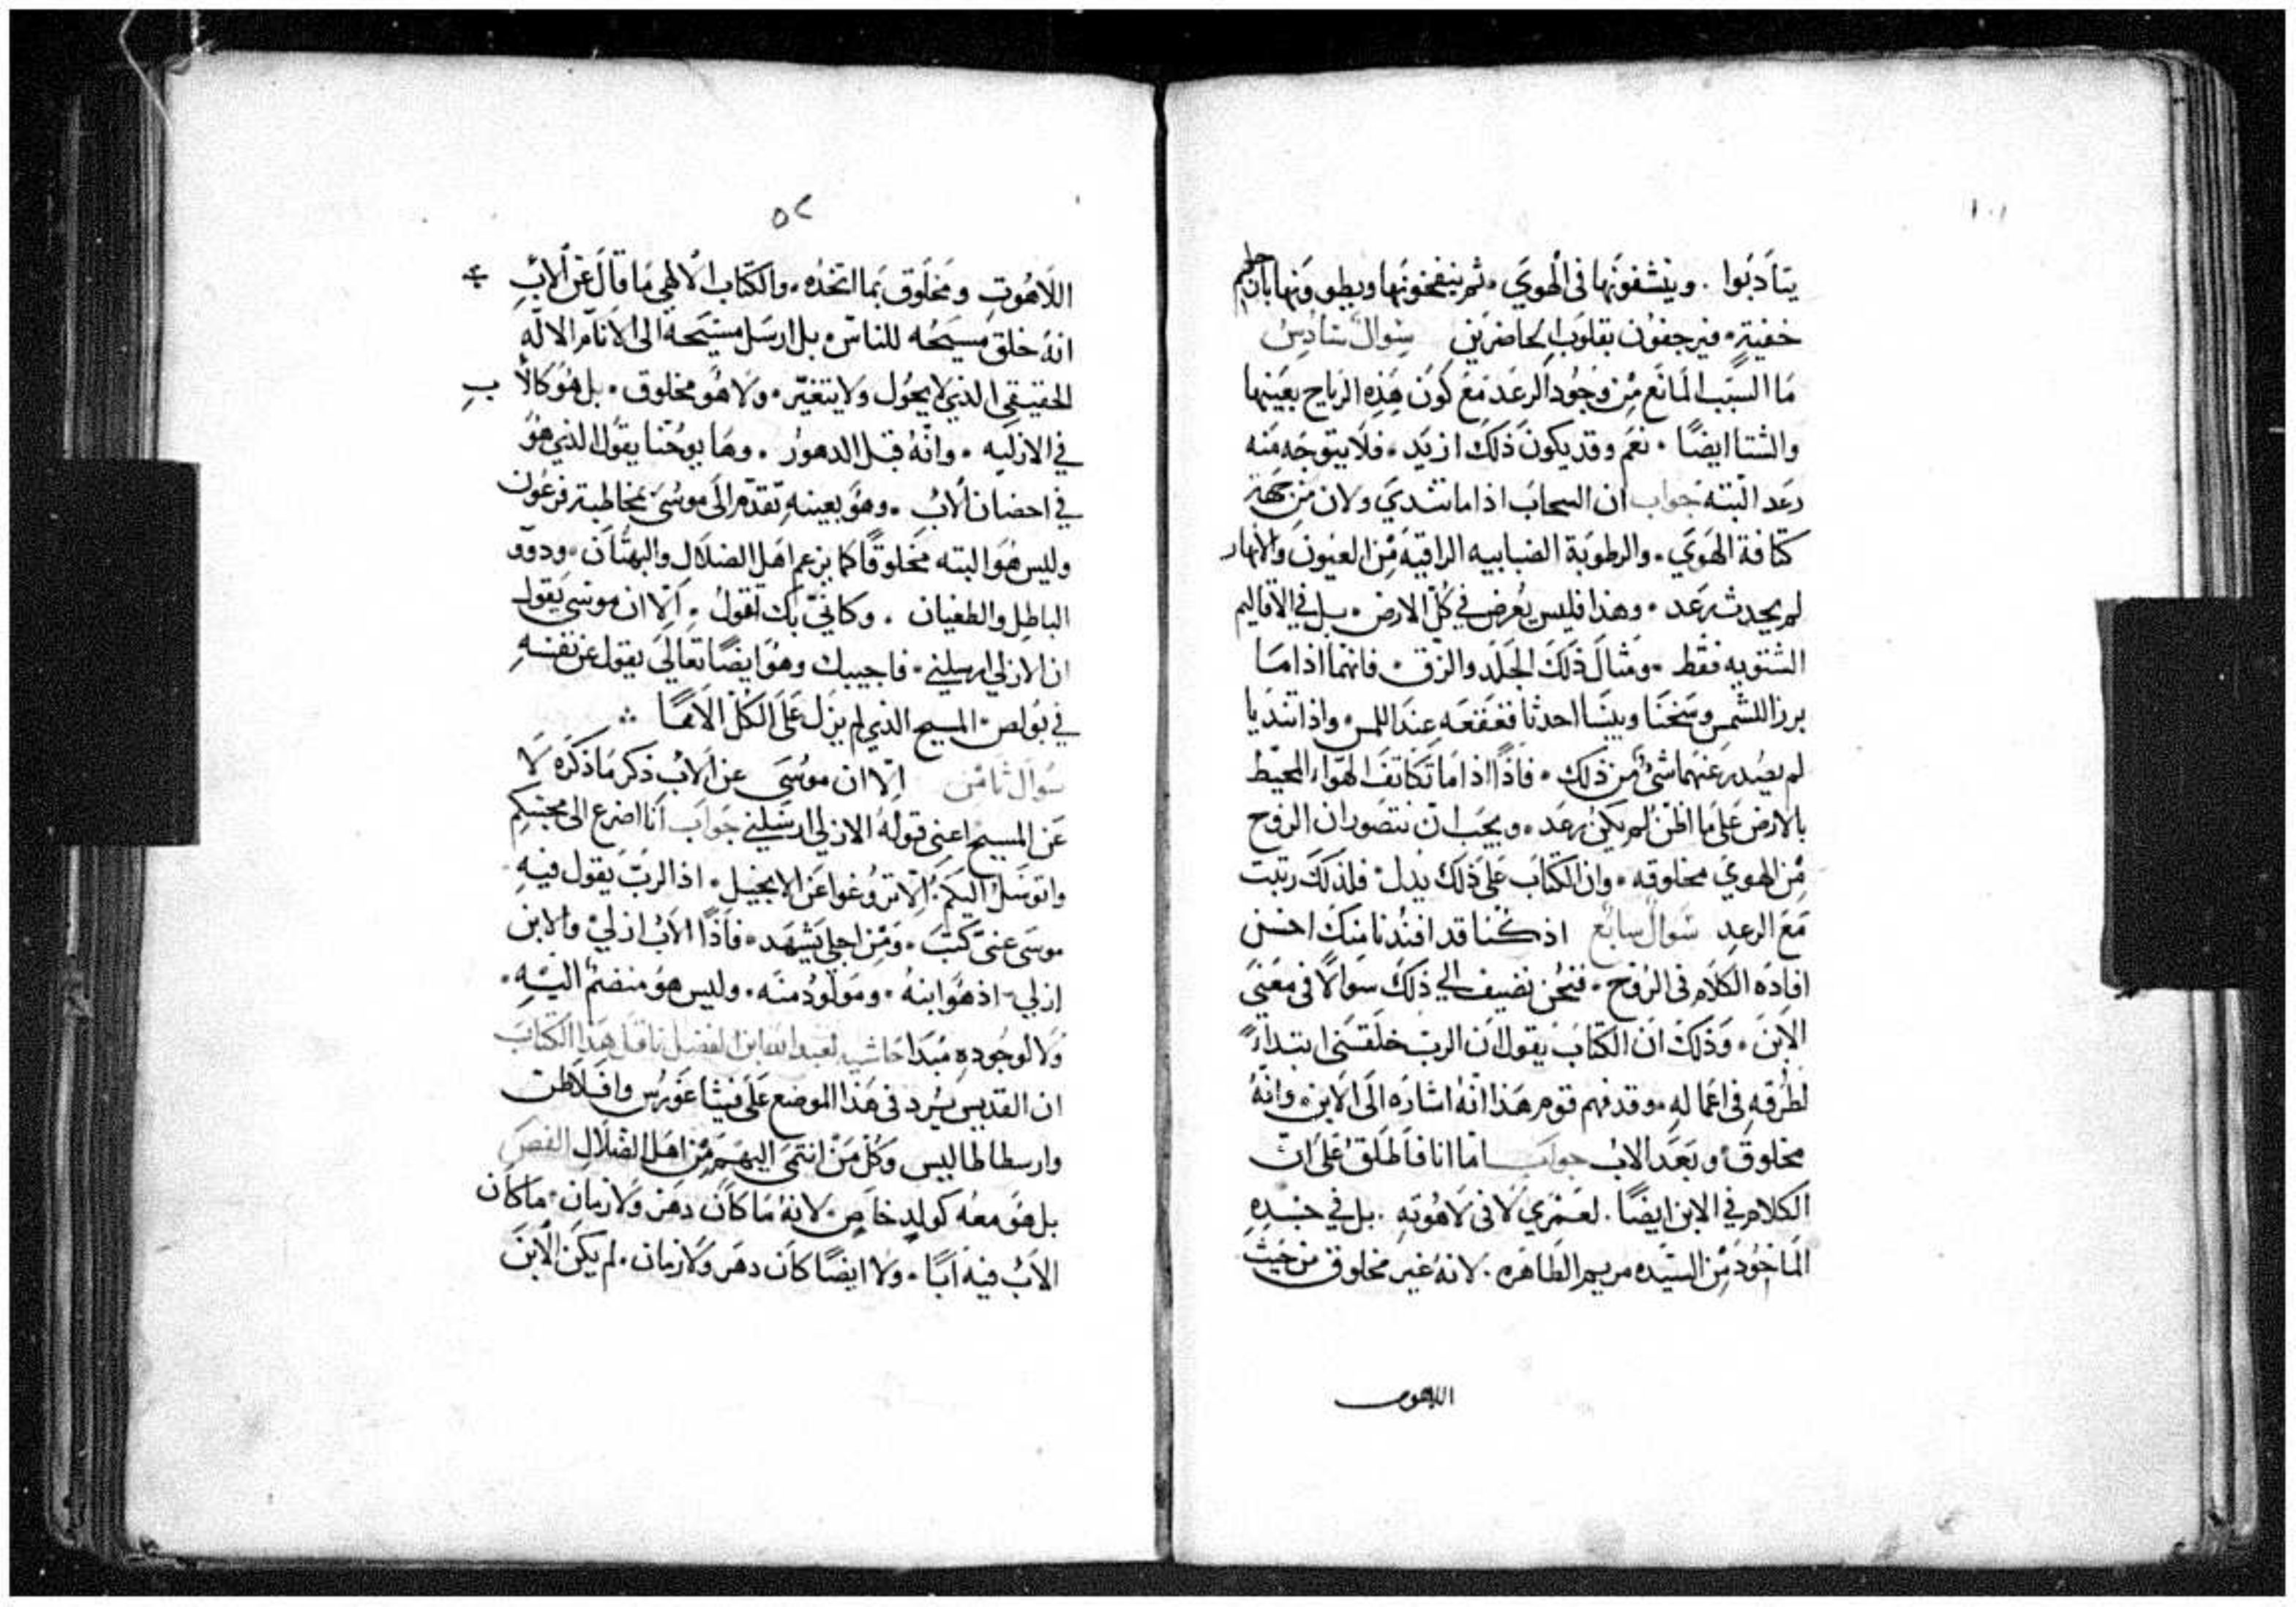 ١٠١
يتأدبوا . وينشفونها فى الهوي . ثم ينفخونها ويطوونها بآن حلم
خفية . فيرجفون بقلوب الحاضرين سوال سادس
ما السبب المانع من وجود الرعد مع كون هذه الرياح بعينها
والشتا ايضًا . نعم وقد يكون ذلك ازيد . فلا يتوجه منه
رعد البته جواب ان السحاب اذا ما تندي ولان من جهة
كثافة الهوي . والرطوبة الضبابيه الراقيه من العيون والانهار
لم يحدث رعد . وهذا فليس يعرض في كل الارض . بل في الاقاليم
الشتويه فقط . ومثال ذلك الجلد والزق . فانهما اذا ما
برزا للشمس وسخنا ويبسا احدثا قعقعه عند اللمس . واذا تنديا
لم يصدر عنهما شئ من ذلك . فاذًا اذا ما تكاثف الهواء المحيط
بالارض على ما اظن لم يكن رعد . ويجب ان نتصور ان الروح
من الهوي مخلوقه . وان الكتاب على ذلك يدل فلذلك رتبت
مع الرعد سوال سابع اذ كنا قد افدنا منك احسن
افاده الكلام فى الروح . فنحن نضيف الى ذلك سوالًا فى معني
الابن . وذلك ان الكتاب يقول ان الرب خلقنى ابتداءً
لطرقه في اعماله . وقد فهم قوم هذا انه اشاره الى الابن . وانه
مخلوق وبعد الاب جواب اما انا فاطلق على ان
الكلام في الابن ايضًا . لعمري لا فى لاهوته . بل في جسده
الماخوذ من السيده مريم الطاهره . لانه غير مخلوق من حيث
اللاهوت
٥٢
اللاهوت ومخلوق بما اتخذه . والكتاب الالهي ما قال عن الاب
انه خلق مسيحه للناس . بل ارسل مسيحه الى الانام الاله
الحقيقي الذي لا يحول ولا يتغير . ولا هو مخلوق . بل هو كالاب
في الازليه . وانه قبل الدهور . وها يوحنا يقول الذي هو
في احضان الاب . وهو بعينه تقدم الى موسى بمخاطبة فرعون
وليس هو البته مخلوقًا كما يزعم اهل الضلال والبهتان . وذوو
الباطل والطغيان . وكاني بك تقول . الا ان موسى يقول
ان الازلي ارسلني . فاجيبك وهو ايضًا تعالى يقول عن نفسه
في بولص . المسيح الذي لم يزل على الكل الاهًا
سوال ثامن الا ان موسى عن الاب ذكر ما ذكره لا
عن المسيح اعني قوله الازلي ارسلني جواب انا اضرع الى محبتكم
واتوسل اليكم . الا تروغوا عن الانجيل . اذ الرب يقول فيه
موسى عنى كتب . ومن اجلي يشهد . فاذًا الاب ازلي والابن
ازلي . اذ هو ابنه . ومولود منه . وليس هو منضم اليه .
ولا لوجوده مبدا حاشيه لعبد الله ابن الفضل ناقل هذا الكتاب
ان القديس يرد فى هذا الموضع على فيثاغورس وافلاطن
وارسطاطاليس وكل من انتمى اليهم من اهل الضلال النص
بل هو معه كولد خاص . لانه ما كان دهر ولا زمان . ما كان
الاب فيه ابًا . ولا ايضًا كان دهر ولا زمان . لم يكن الابن